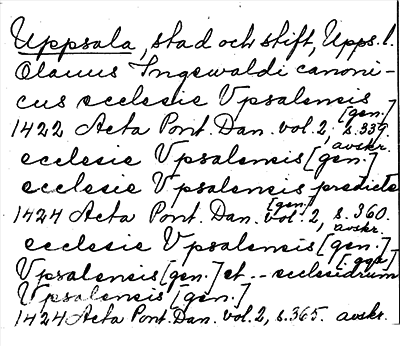 Uppsala, stad och stift, Upps. l.
Olauus Ingewaldi canoni-
cus ecclesie Vpsalensis
[gen.]
1422 Acta Pont. Dan. vol. 2, s. 339.
avskr.
ecclesie Vpsalensis [gen.]
ecclesie Vpsalensis predicte
[gen.]
1424 Acta Pont. Dan. vol. 2, s. 360.
avskr.
ecclesie Vpsalensis [gen.]
Vpsalensis [gen.] et -- ecclesiarum
Vpsalensis [gen.]
1424 Acta Pont. Dan. vol. 2, s. 365. avskr.